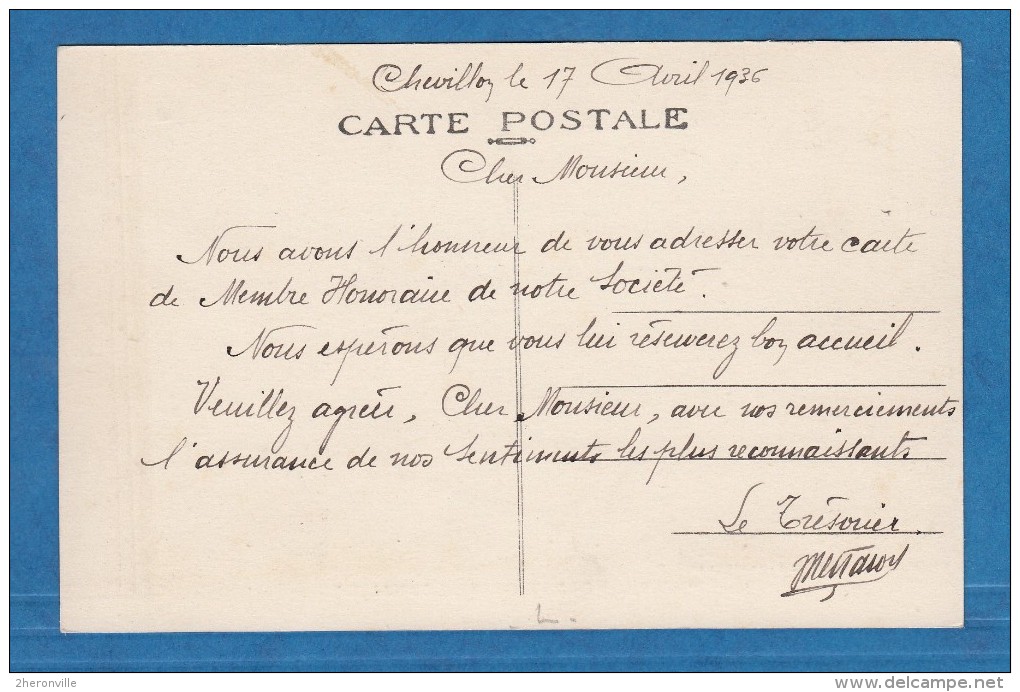 Chevillon le 17 Avril 1936
CARTE POSTALE
Cher Monsieur,
Nous avons l'honneur de vous adresser votre carte
de Membre Honoraire de notre Société.
Nous espérons que vous lui réserverez bon accueil.
Veuillez agréer, Cher Monsieur, avec nos remerciements
l'assurance de nos sentiments les plus reconnaissants
Le Trésorier.
2heronville
delcampe.net